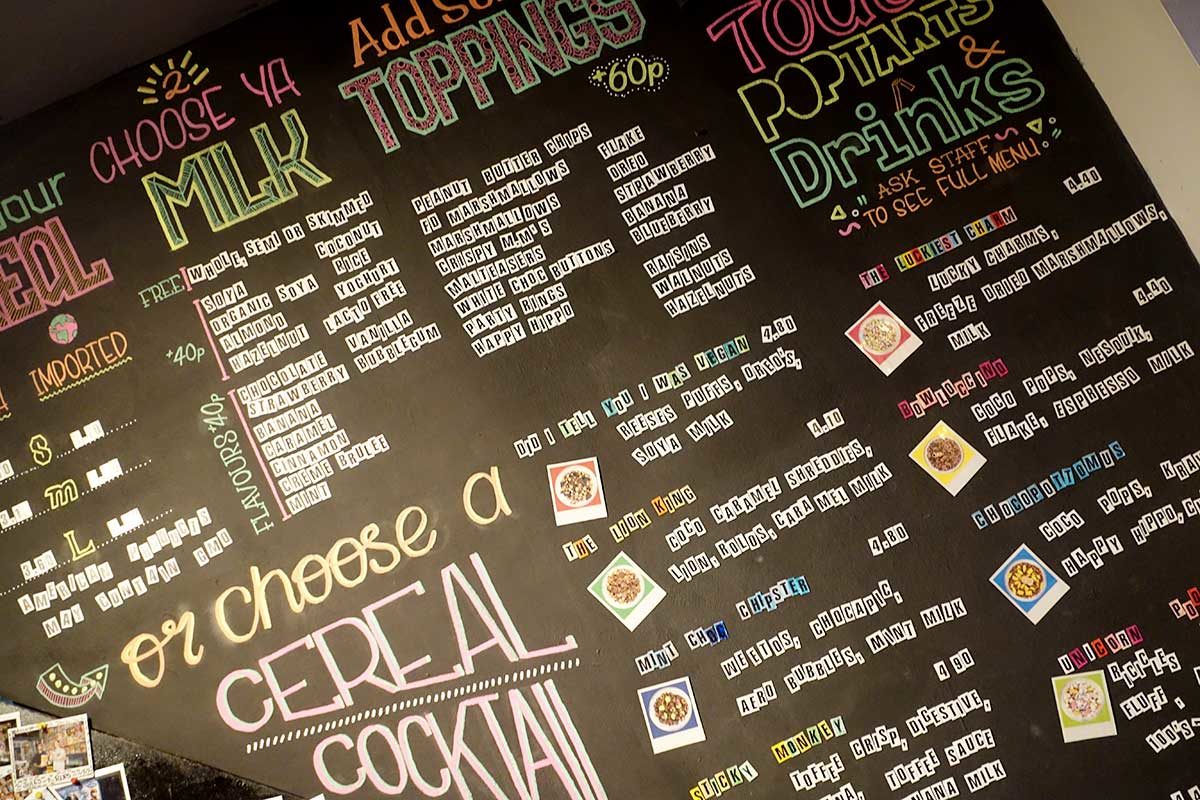 our
2
CHOOSE YA
MILK
FREE
WHOLE, SEMI OR SKIMMED
+40p
SOYA
ORGANIC SOYA
ALMOND
HAZELNUT
COCONUT
RICE
YOGHURT
LACTO FREE
FLAVOURS 40p
CHOCOLATE
STRAWBERRY
BANANA
CARAMEL
CINNAMON
CREME BRULEE
MINT
VANILLA
BUBBLEGUM
IMPORTED
S
m
L
AMERICAN PRODUCTS
MAY CONTAIN GMO
Add
TOPPINGS
+60p
PEANUT BUTTER CHIPS
FD MARSHMALLOWS
MARSHMALLOWS
CRISPY M&M'S
MALTEASERS
WHITE CHOC BUTTONS
PARTY RINGS
HAPPY HIPPO
FLAKE
OREO
STRAWBERRY
BANANA
BLUEBERRY
RAISINS
WALNUTS
HAZELNUTS
or choose a
CEREAL
COCKTAIL
POPTARTS
&
Drinks
ASK STAFF
TO SEE FULL MENU
DID I TELL YOU I WAS VEGAN 4.80
REESES PUFFS, OREO'S,
SOYA MILK
THE LION KING 4.10
COCO CARAMEL SHREDDIES,
LION, ROLOS, CARAMEL MILK
MINT CHOC CHIPSTER 4.80
WEETOS, CHOCAPIC,
AERO BUBBLES, MINT MILK
STICKY MONKEY 4.90
TOFFEE CRISP, DIGESTIVE,
TOFFEE SAUCE
NANA MILK
THE LUCKIEST CHARM 4.40
LUCKY CHARMS,
FREEZE DRIED MARSHMALLOWS,
MILK
BOWLOCCINO 4.40
COCO POPS, NESQUIK,
FLAKE, ESPRESSO MILK
CHOCOPOTTOMUS
COCO POPS,
HAPPY HIPPO,
UNICORN
RICICLES
FLUFF,
100'S